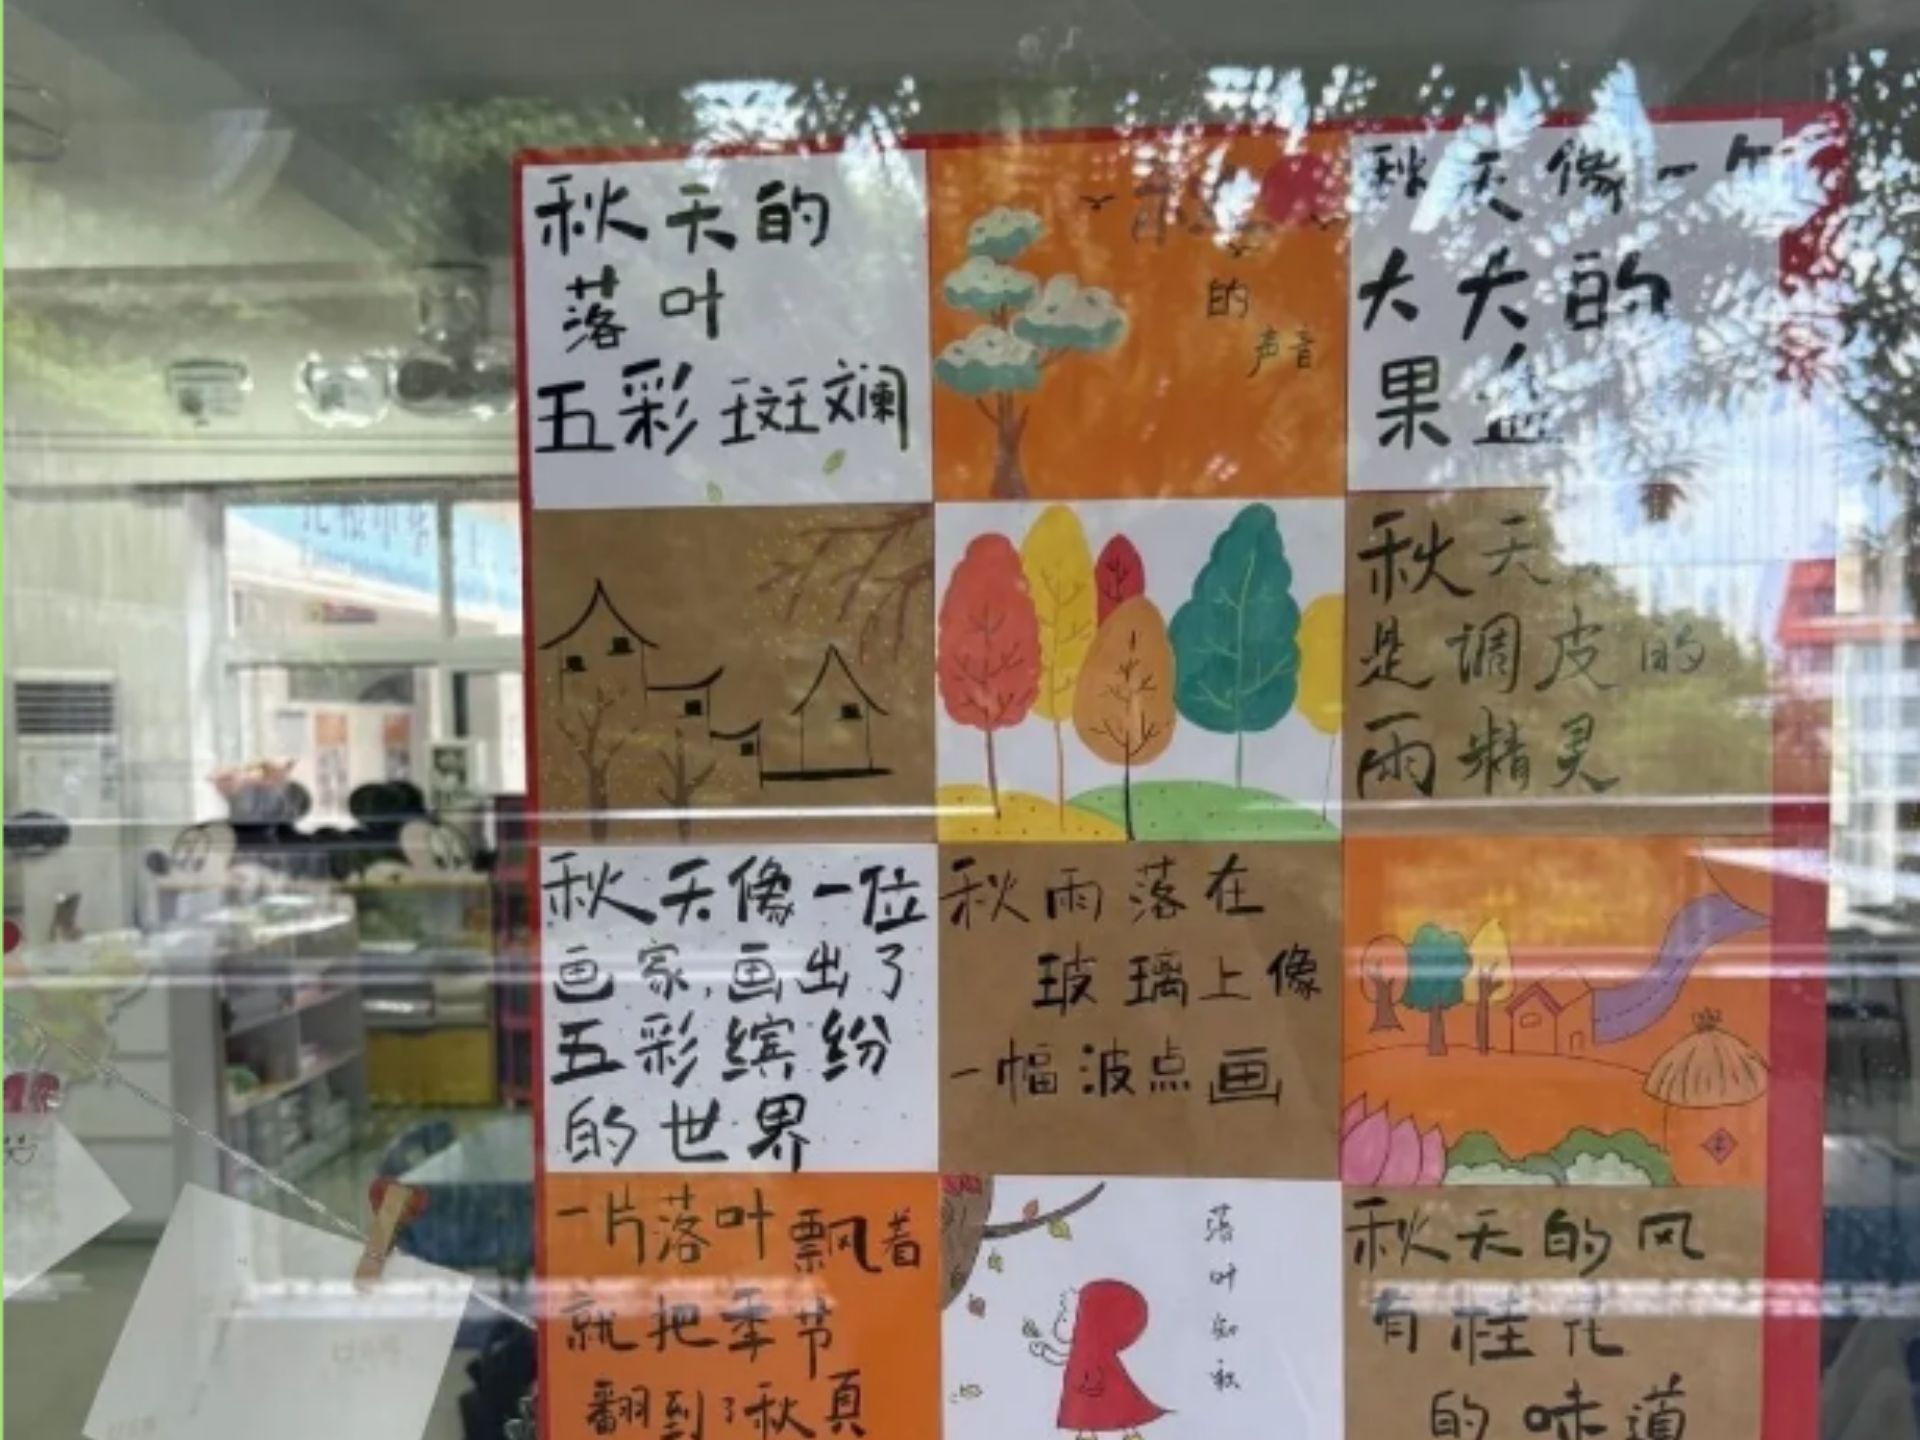 秋天的
落叶
五彩斑斓
的
声音
秋天像一个
大大的
果盘
秋天
是调皮的
雨精灵
秋天像一位
画家,画出了
五彩缤纷
的世界
秋雨落在
玻璃上像
一幅波点画
一片落叶飘着
就把季节
翻到了秋頁
落
叶
知
秋
秋天的风
有桂花
的味道